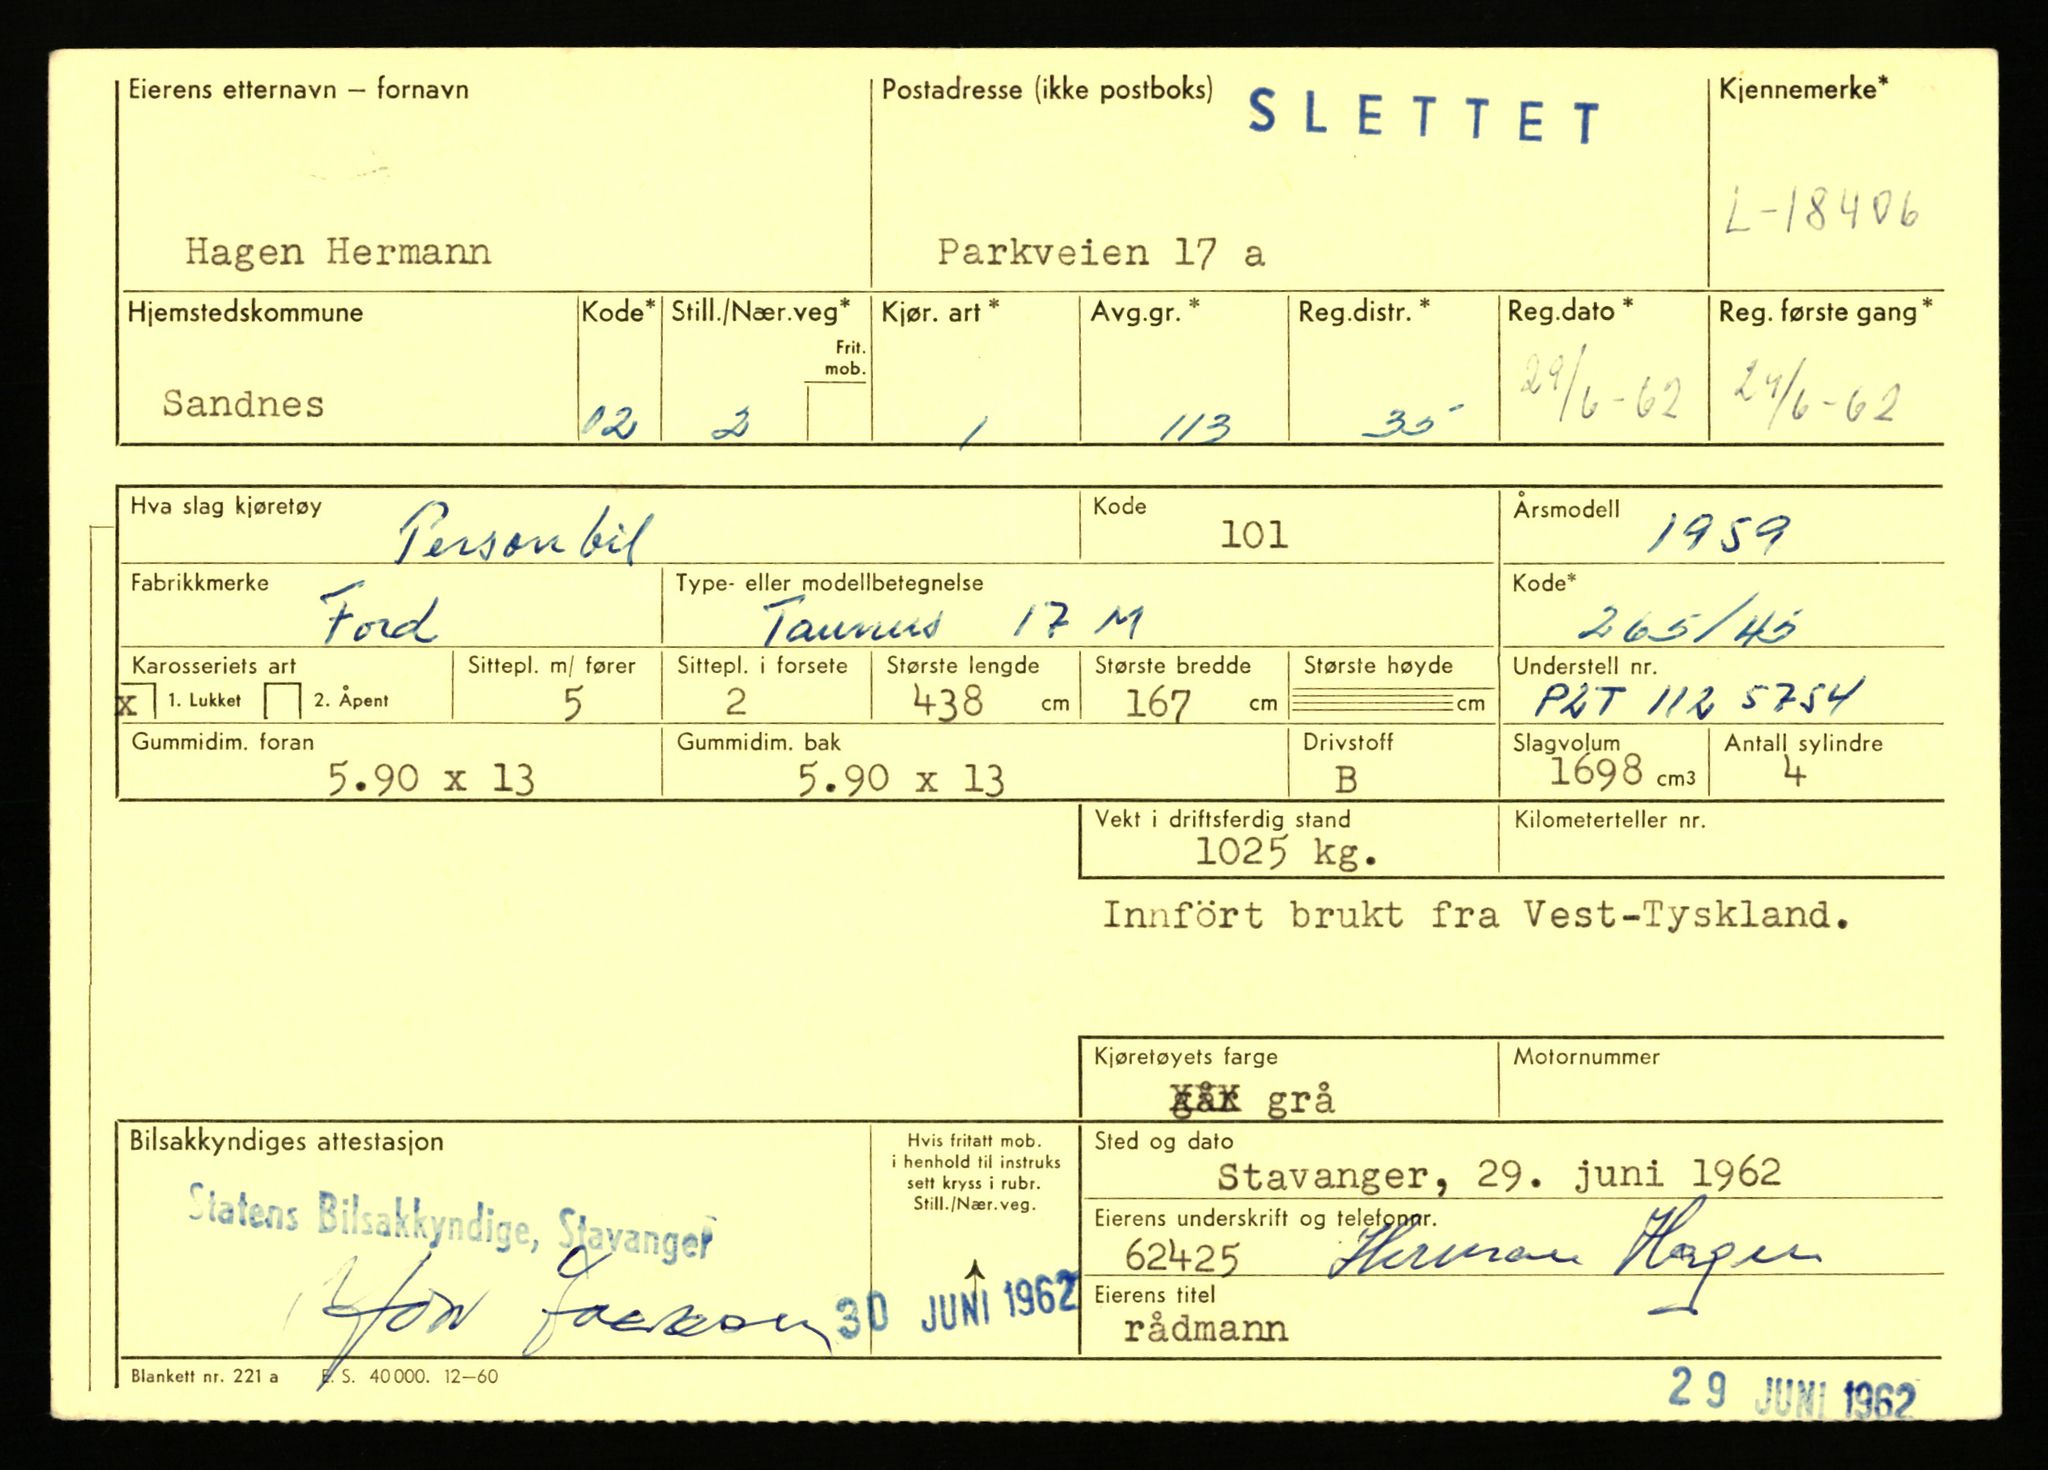 Eierens etternavn – fornavn
Postadresse (ikke postboks)
SLETTET
Kjennemerke*
L-18406
Hagen Hermann
Parkveien 17 a
Hjemstedskommune
Kode*
Still./Nær.veg*
Kjør. art*
Avg.gr.*
Reg.distr.*
Reg.dato*
Reg. første gang*
Frit.
mob.
Sandnes
02
2
1
113
35
29/6-62
29/6-62
Hva slag kjøretøy
Personbil
Kode
101
Årsmodell
1959
Fabrikkmerke
Ford
Type- eller modellbetegnelse
Taunus 17 M
Kode*
265/45
Karosseriets art
x 1. Lukket 2. Åpent
Sittepl. m/ fører
5
Sittepl. i forsete
2
Største lengde
438 cm
Største bredde
167 cm
Største høyde
cm
Understell nr.
P2T 112 5754
Gummidim. foran
5.90 x 13
Gummidim. bak
5.90 x 13
Drivstoff
B
Slagvolum
1698 cm3
Antall sylindre
4
Vekt i driftsferdig stand
1025 kg.
Kilometerteller nr.
Innfört brukt fra Vest-Tyskland.
Kjøretøyets farge
grå
Motornummer
Bilsakkyndiges attestasjon
Statens Bilsakkyndige, Stavanger
30 JUNI 1962
Hvis fritatt mob.
i henhold til instruks
sett kryss i rubr.
Still./Nær.veg.
Sted og dato
Stavanger, 29. juni 1962
Eierens underskrift og telefonnr.
62425 Herman Hagen
Eierens titel
rådmann
Blankett nr. 221 a E. S. 40 000. 12–60
29 JUNI 1962